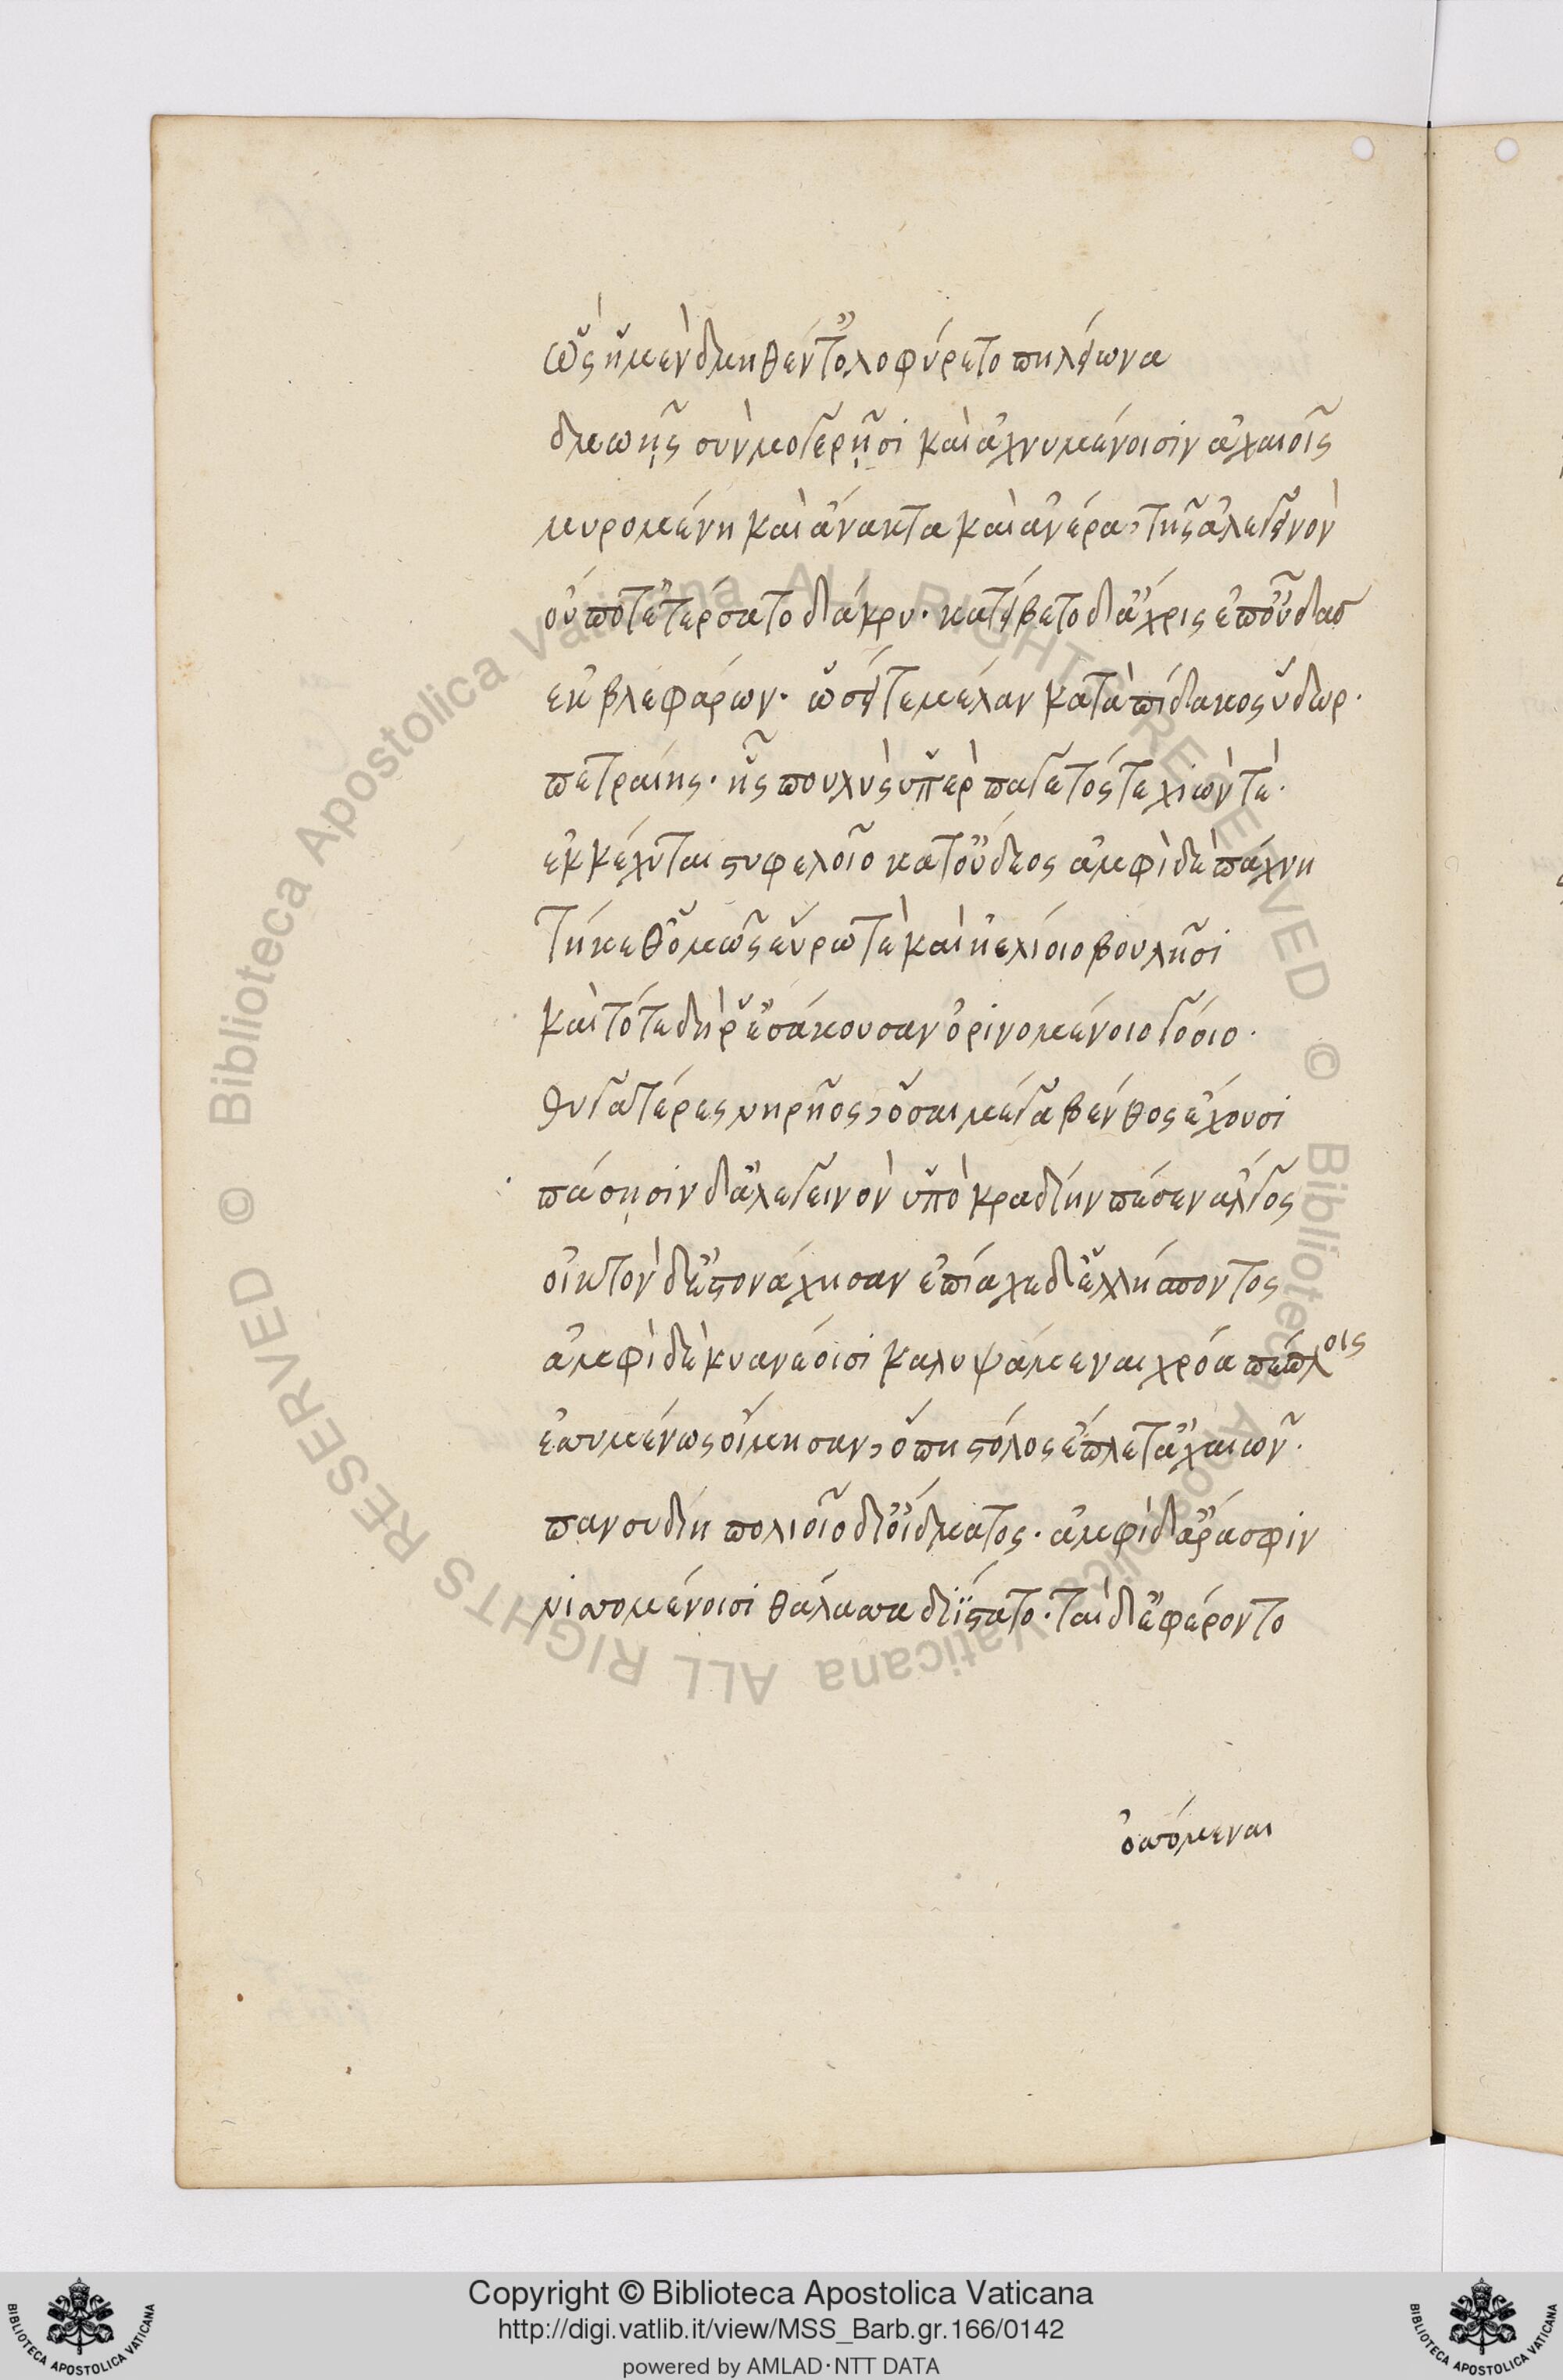 ὣς ἣ μὲν δμηθέντ' ὀλοφύρετο πηλείωνα
δμωῇς σὺν μογερῇσι καὶ ἀχνυμένοισιν ἀχαιοῖς
μυρομένη καὶ ἄνακτα καὶ ἀνέρα, τῆς ἀλεγεινὸν
οὔποτ' ἐτέρσατο δάκρυ· κατείβετο δ' ἄχρις ἐπ' οὖδας
ἐκ βλεφάρων· ὡσεί τε μέλαν κατὰ πίδακος ὕδωρ·
πετραίης· ἧς πουλὺς ὑπὲρ παγετός τε χιών τε·
ἐκκέχυται στυφελοῖο κατ' οὔδεος ἀμφὶ δὲ πάχνη
τήκεθ' ὁμῶς εὔρῳ τὲ καὶ ἠελίοιο βουλῇσι
καὶ τότε δή ῥ' ἐσάκουσαν ὀρινομένοιο γόοιο·
θυγατέρες νηρῆος, ὅσαι μέγα βένθος ἔχουσι
πάσῃσιν δ' ἀλεγεινὸν ὑπὸ κραδίην πέσεν ἄλγος
οἰκτὸν δ' ἐστονάχησαν ἐπίαχε δ' ἑλλήσποντος
ἀμφὶ δὲ κυανέοισι καλυψάμεναι χρόα πέπλοις
ἐσσυμένως οἴμησαν, ὅπη στόλος ἔπλετ' ἀχαιῶν·
πανσυδίη πολιοῖο δι' οἴδματος· ἀμφὶ δ' ἄρά σφιν
νισσομένοισι θάλασσα διΐστατο· ταὶ δ' ἐφέροντο
ὀσσόμεναι
Copyright © Biblioteca Apostolica Vaticana
http://digi.vatlib.it/view/MSS_Barb.gr.166/0142
powered by AMLAD·NTT DATA
BIBLIOTECA APOSTOLICA VATICANA
BIBLIOTECA APOSTOLICA VATICANA
© Biblioteca Apostolica Vaticana ALL RIGHTS RESERVED © Biblioteca Apostolica Vaticana ALL RIGHTS RESERVED